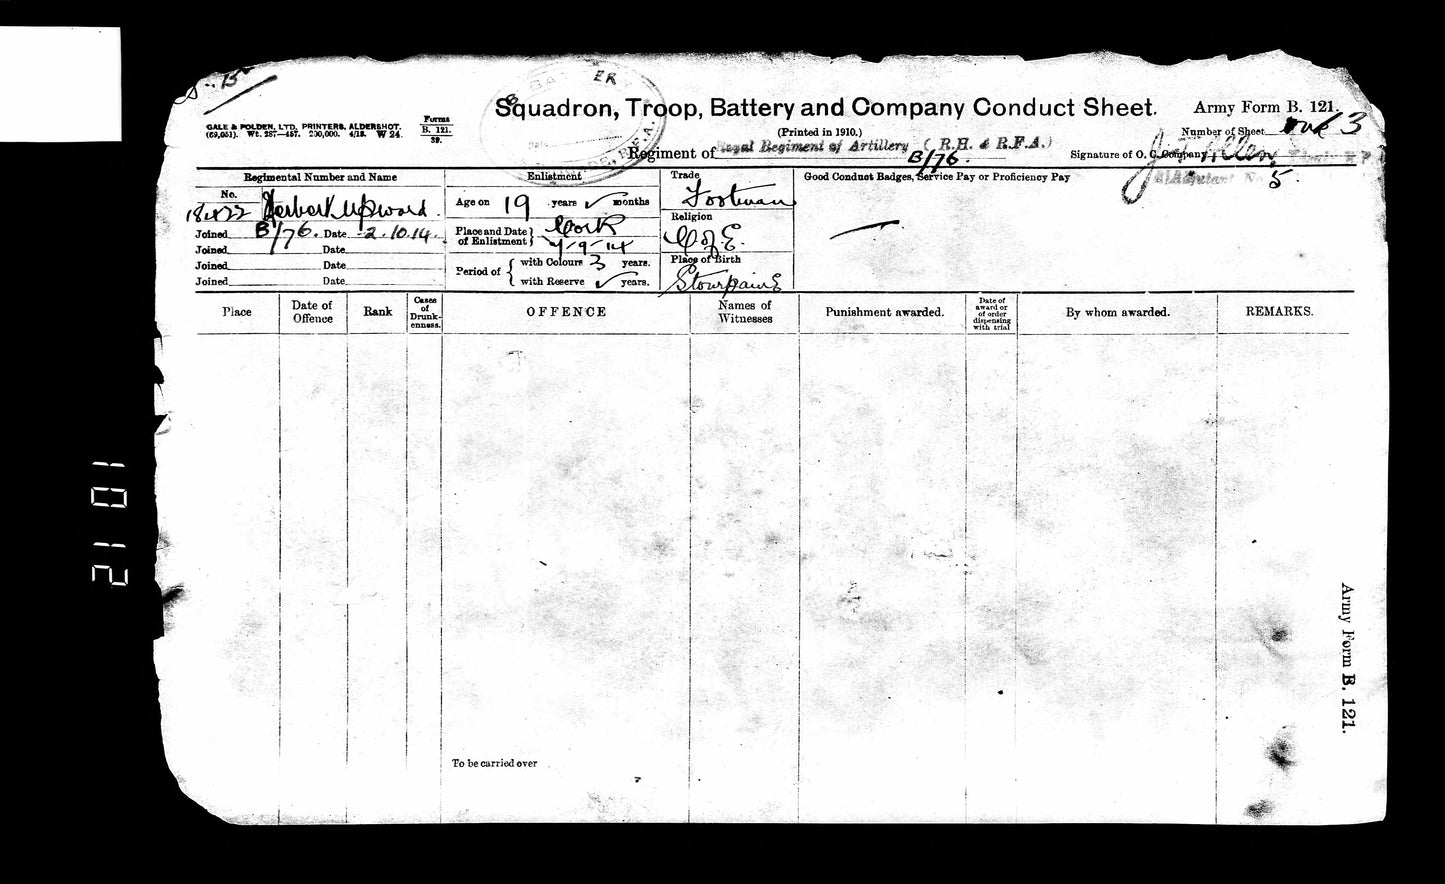 Squadron, Troop, Battery and Company Conduct Sheet.
Army Form B. 121.
GALE & POLDEN, LTD. PRINTERS, ALDERSHOT.
Forms
B. 121.
39.
(Printed in 1910.)
Number of Sheet
Regiment of Royal Regiment of Artillery (R.H. & R.F.A.)
B/76.
Signature of O. C. Company
5.
Regimental Number and Name
No.
Herbert Upward.
Joined B/76. Date 2.10.14.
Joined Date
Joined Date
Joined Date
Enlistment
Age on 19 years ✓ months
Place and Date of Enlistment } Cork
4-9-14
Period of { with Colours 3 years.
with Reserve ✓ years.
Trade
Footman
Religion
C of E.
Place of Birth
Stourpaine
Good Conduct Badges, Service Pay or Proficiency Pay
Place
Date of Offence
Rank
Cases of Drunkenness.
OFFENCE
Names of Witnesses
Punishment awarded.
Date of award or of order dispensing with trial
By whom awarded.
REMARKS.
To be carried over
Army Form B. 121.
21 01